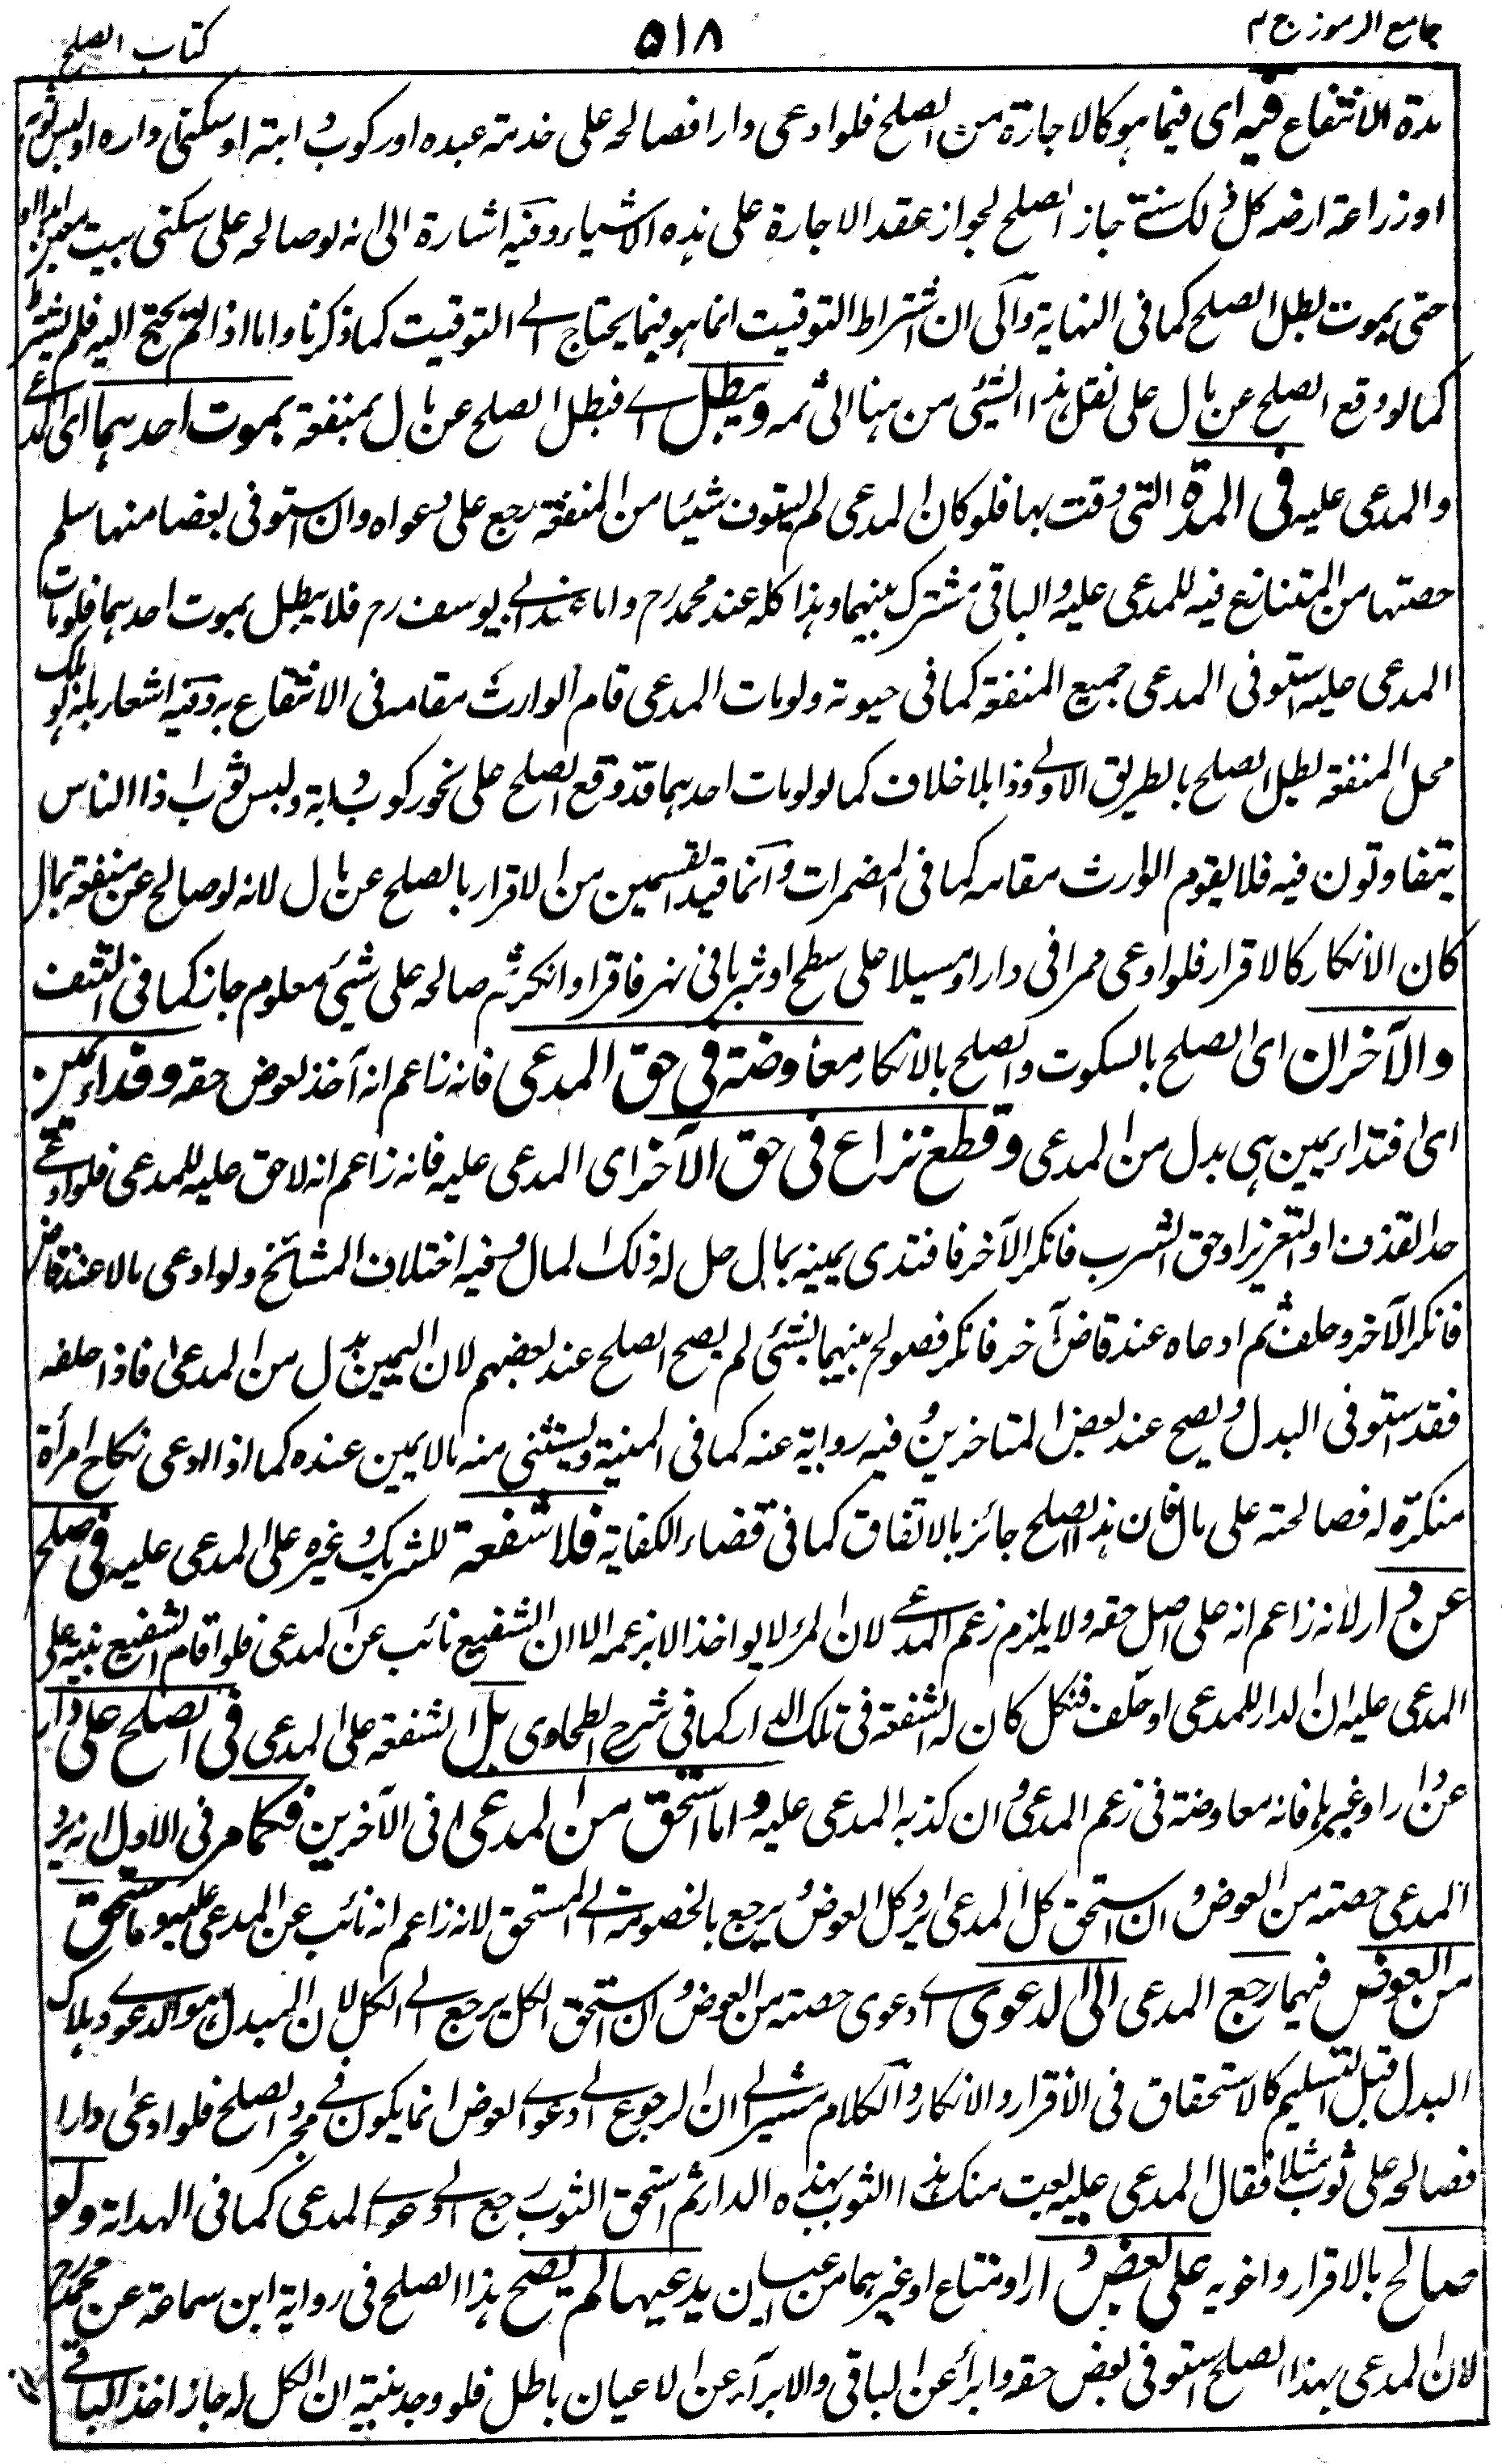 جامع الرموز ج ٢
٥١٨
كتاب الصلح
مدة الانتفاع فيه اى فيما هو كالاجارة من الصلح فلو ادعى دارا فصالحه على خدمة عبده او ركوب دابته او سكنى داره او لبس ثوبه
او زراعة ارضه كل ذلك سنة جاز الصلح لجواز عقد الاجارة على هذه الاشياء وفيه اشارة الى انه لو صالحه على سكنى بيت معين ابدا او
حتى يموت بطل الصلح كما فى النهاية والى ان اشتراط التوقيت انما هو فيما يحتاج الى التوقيت كما ذكرنا واما اذا لم يحتج اليه فلم يشترط
كما لو وقع الصلح عن مال على نقل هذا الشئ من هنا الى ثمه ويبطل اى فبطل الصلح عن مال بمنفعة بموت احدهما اى المدعى
والمدعى عليه فى المدة التى وقت بها فلو كان المدعى لم يستوف شيئا من المنفعة رجع على دعواه وان استوفى بعضا منها سلم
حصتها من المتنازع فيه للمدعى عليه والباقى مشترك بينهما وهذا كله عند محمد رح واما عند ابى يوسف رح فلا يبطل بموت احدهما فلو مات
المدعى عليه استوفى المدعى جميع المنفعة كما فى حيوته ولو مات المدعى قام الوارث مقامه فى الانتفاع به وفيه اشعار بانه لو هلك
محل المنفعة بطل الصلح بالطريق الاولى وذا بلا خلاف كما لو لومات احدهما قد وقع الصلح على نحو ركوب دابة ولبس ثوب اذا الناس
يتفاوتون فيه فلا يقوم الوارث مقامه كما فى المضمرات وانما قيد القسمين من الاقرار بالصلح عن مال لانه لو صالح عن منفعة بمال
كان الانكار كالاقرار فلو ادعى ممرا فى دار او مسيلا على سطح او شربا فى نهر فاقر او انكر ثم صالحه على شيئ معلوم جاز كما فى النتف
والآخران اى الصلح بالسكوت والصلح بالانكار معاوضة فى حق المدعى فانه زاعم انه آخذ لعوض حقه وفداء يمين
اى افتداء يمين هى بدل من المدعى وقطع نزاع فى حق الآخر اى المدعى عليه فانه زاعم انه لا حق عليه للمدعى فلو ادعى
حد القذف او التعزير او حق الشرب فانكر الآخر فافتدى يمينه بمال حل له ذلك المال وفيه اختلاف المشائخ ولو ادعى مالا عند قاض
فانكر الآخر وحلف ثم ادعاه عند قاض آخر فانكر فصولح بينهما بشئى لم يصح الصلح عند بعضهم لان اليمين بدل من المدعى فاذا حلفه
فقد استوفى البدل ويصح عند بعض المتاخرين وفيه رواية عنه كما فى المنية ويستثنى منه مالا يمين عنده كما اذا ادعى نكاح امرأة
منكرة له فصالحته على مال فان هذا الصلح جائز بالاتفاق كما فى قضاء الكفاية فلا شفعة للشريك وغيره على المدعى عليه فى صلح
عن دار لانه زاعم انه على اصل حقه ولا يلزم زعم المدعى لان المرء لا يواخذ الا بزعمه الا ان الشفيع نائب عن المدعى فلو اقام الشفيع بينة على
المدعى عليه ان الدار للمدعى او حلف فنكل كان له الشفعة فى تلك الدار كما فى شرح الطحاوى بل الشفعة على المدعى فى الصلح على دار
عن دار او غيرها فانه معاوضة فى زعم المدعى وان كذبه المدعى عليه وما استحق من المدعى فى الآخرين فكما مر فى الاول انه يرد
المدعى حصته من العوض وان استحق كل المدعى يرد كل العوض ويرجع بالخصومة الى المستحق لانه زاعم انه نائب عن المدعى عليه وما استحق
من العوض فيهما رجع المدعى الى الدعوى اى دعوى حصته من العوض وان استحق الكل يرجع الى الكل لان المبدل هو الدعوى وهلاك
البدل قبل التسليم كالاستحقاق فى الاقرار والانكار والكلام مشير الى ان الرجوع الى دعوى العوض انما يكون فى مجرد الصلح فلو ادعى دارا
فصالحه على ثوب مثلا فقال المدعى عليه بعت منك هذا الثوب بهذه الدار ثم استحق الثوب رجع الى دعوى المدعى كما فى الهداية ولو
صالح بالاقرار واخويه على بعض دار او متاع او غيرهما من عيان يدعيها لم يصح هذا الصلح فى رواية ابن سماعة عن محمد رح
لان المدعى بهذا الصلح استوفى بعض حقه وابرأ عن الباقى والابراء عن الاعيان باطل فلو وجد بينة ان الكل له جاز اخذ الباقى